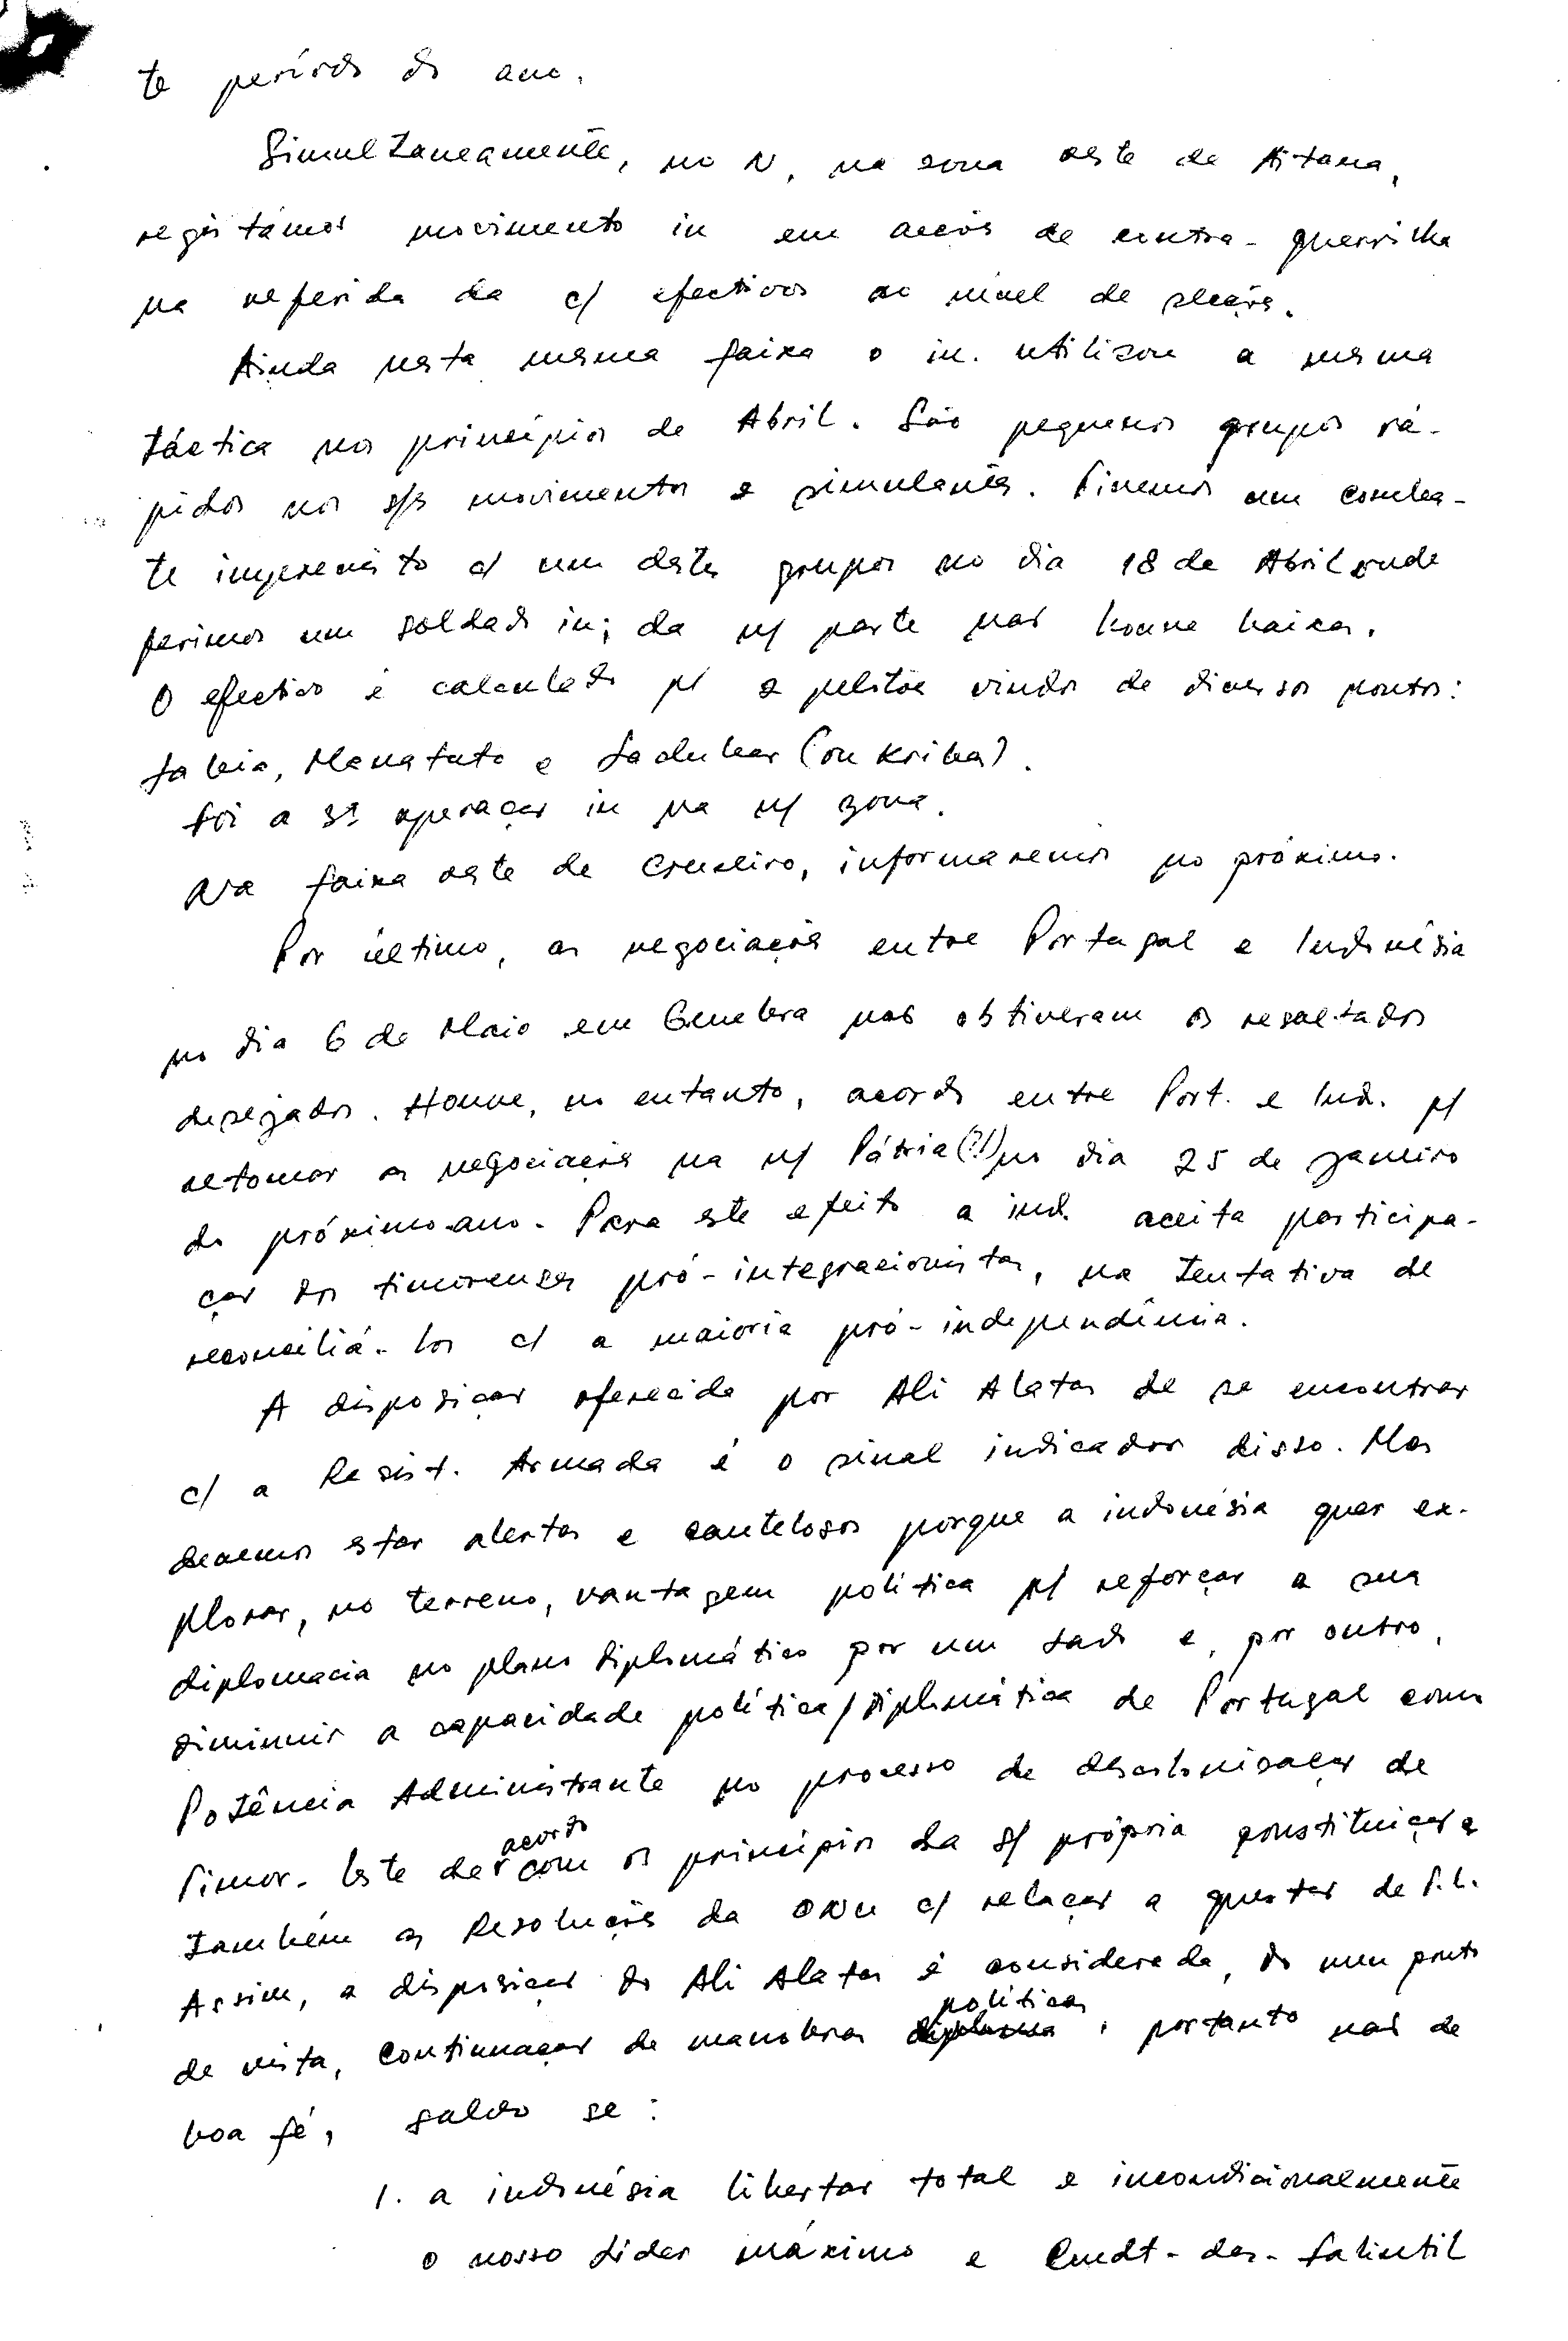 te período do ano.
Simultaneamente, no N, na zona oeste de Aitana,
registámos movimento in em acções de contra-guerrilha
na referida da c/ efectivos ao nível de secção.
Ainda nesta mesma faixa o in. utilizou a mesma
táctica nos princípios de Abril. São pequenos grupos rá-
pidos nos s/s movimentos e simulantes. Tivemos um comba-
te imprevisto c/ um destes grupos no dia 18 de Abril onde
ferimos um soldado in; da n/ parte não houve baixas.
O efectivo é calculado p/ 2 pelotões vindos de diversos pontos:
Laleia, Manatuto e Salubar (ou Kribas).
Foi a 3ª operação in na n/ zona.
Na faixa oeste de Cruzeiro, informaremos no próximo.
Por último, as negociações entre Portugal e Indonésia
no dia 6 de Maio em Genebra não obtiveram os resultados
desejados. Houve, no entanto, acordo entre Port. e Ind. p/
retomar as negociações na n/ Pátria(?!) no dia 25 de Janeiro
do próximo ano. Para este efeito a ind. aceita participa-
ção dos timorenses pró-integracionistas, na tentativa de
reconciliá-los c/ a maioria pró-independência.
A disposição oferecida por Ali Alatas de se encontrar
c/ a Resist. Armada é o sinal indicador disso. Mas
devemos estar alertas e cautelosos porque a indonésia quer ex-
plorar, no terreno, vantagem política p/ reforçar a sua
diplomacia no plano diplomático por um lado e, por outro,
diminuir a capacidade política/diplomática de Portugal como
Potência Administrante no processo de descolonização de
Timor-Leste de acordo com os princípios da s/ própria constituição e
também as Resoluções da ONU c/ relação a questão de T.L.
Assim, a disposição do Ali Alatas é considerada, do meu ponto
de vista, continuação de manobras políticas, portanto não de
boa fé, salvo se:
1. a indonésia libertar total e incondicionalmente
o nosso Líder máximo e Cmdt-das-Falintil